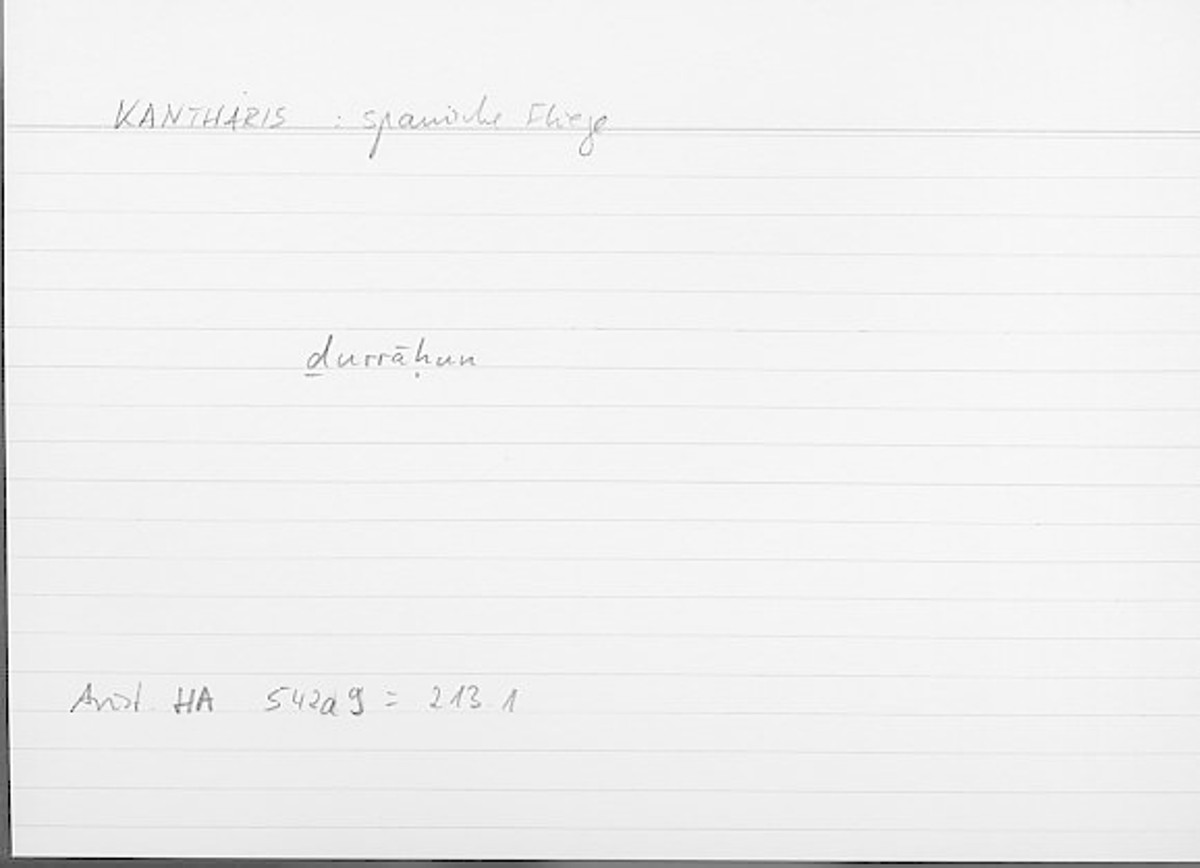 KANTHÁRIS : spanische Fliege
ḏurrāḥun
Arist. HA 542a9 = 213 1